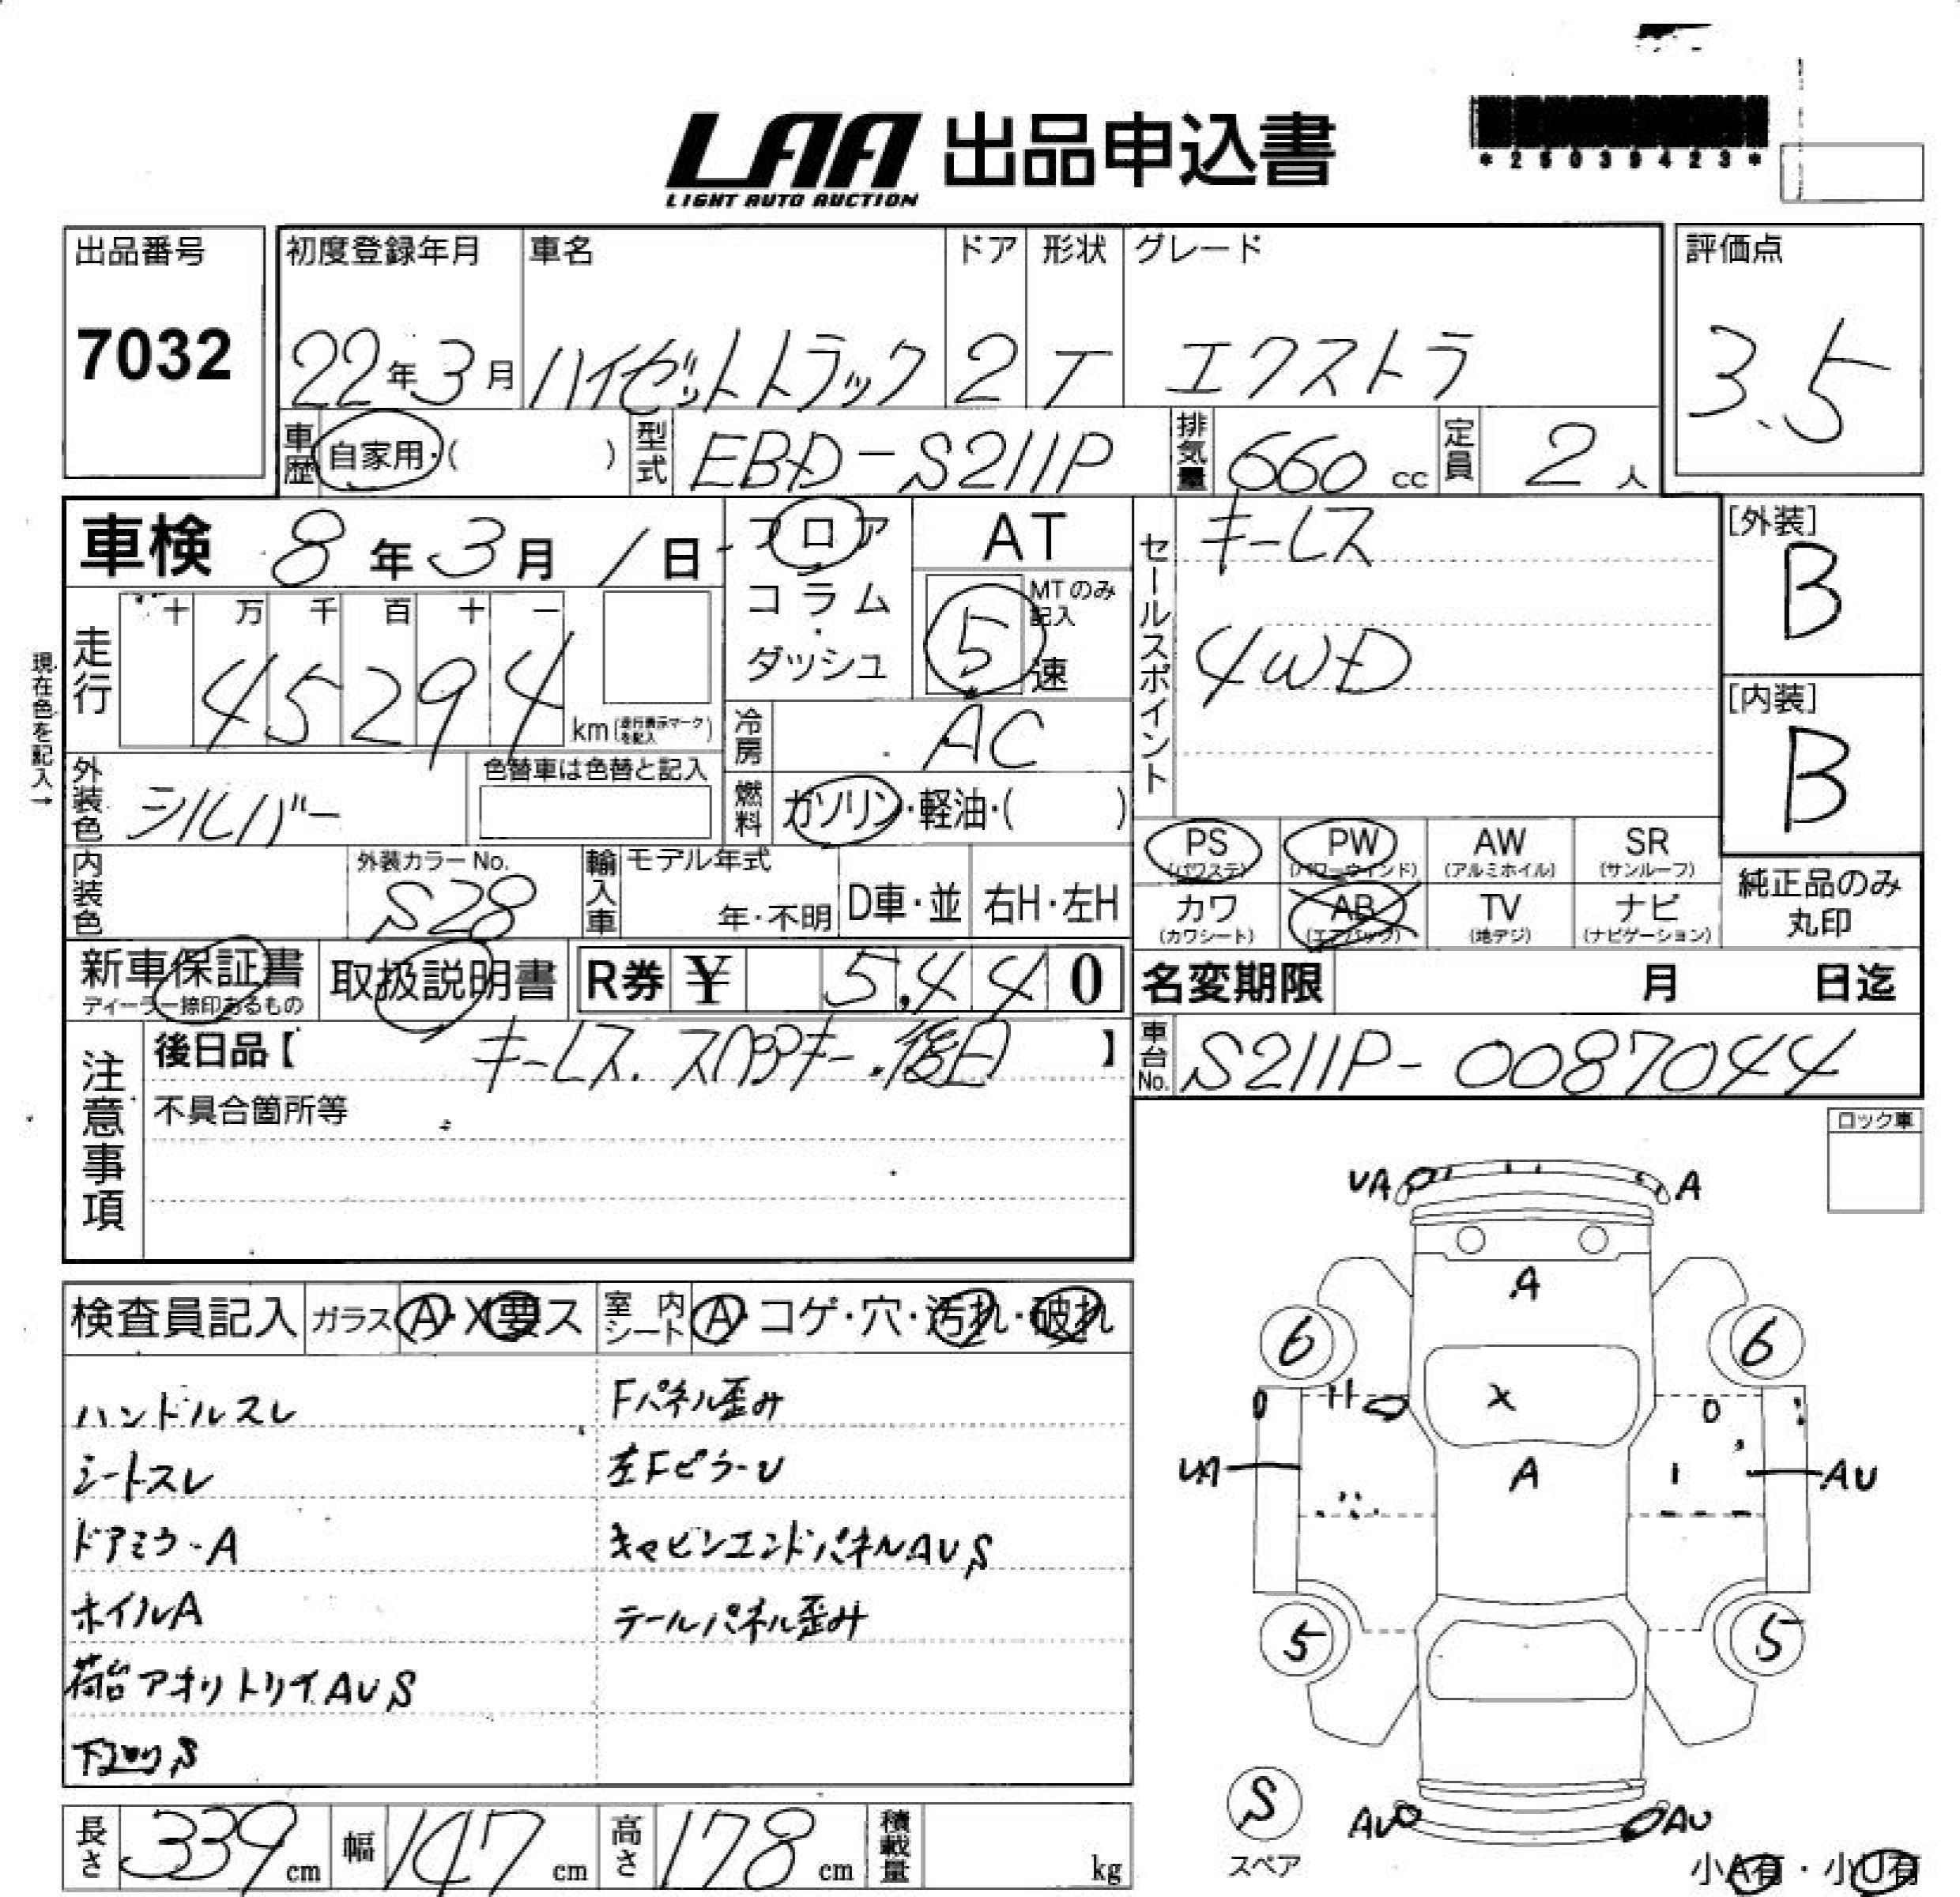 LAA 出品申込書
LIGHT AUTO AUCTION
*25039423*
出品番号
7032
初度登録年月
22年3月
車名
ハイゼットトラック
ドア
2
形状
T
グレード
エクストラ
評価点
3.5
車歴 自家用・( )
型式 EBD-S211P
排気量 660 cc
定員 2 人
車検 8年3月1日
フロア
コラム
・
ダッシュ
AT
MTのみ記入
5速
現在色を記入→
走行
十 万 千 百 十 一
45294
km (走行表示マークを記入)
冷房 AC
外装色 シルバー
色替車は色替と記入
燃料 ガソリン・軽油・( )
内装色
外装カラーNo.
S28
輸入車
モデル年式
年・不明
D車・並
右H・左H
セールスポイント
キーレス
4WD
[外装]
B
[内装]
B
PS
(パワステ)
PW
(パワーウインド)
AW
(アルミホイル)
SR
(サンルーフ)
カワ
(カワシート)
AB
(エアバッグ)
TV
(地デジ)
ナビ
(ナビゲーション)
純正品のみ
丸印
新車保証書
ディーラー捺印あるもの
取扱説明書
R券 ¥ 5,440
名変期限 月 日迄
注意事項
後日品【 キーレス.スペアキー.後日 】
不具合箇所等
車台No. S211P-0087044
ロック車
検査員記入
ガラス A・X要ス
室内シート A・コゲ・穴・汚れ・破れ
ハンドルスレ
シートスレ
ドアミラーA
ホイルA
荷台アオリトリイAUS
下廻りS
Fパネル歪み
左FピラーU
キャビンエンドパネルAUS
テールパネル歪み
UA
A
A
6
6
X
UA
A
AU
5
5
S
スペア
AU
AU
小A有・小U有
長さ 339 cm
幅 147 cm
高さ 178 cm
積載量 kg